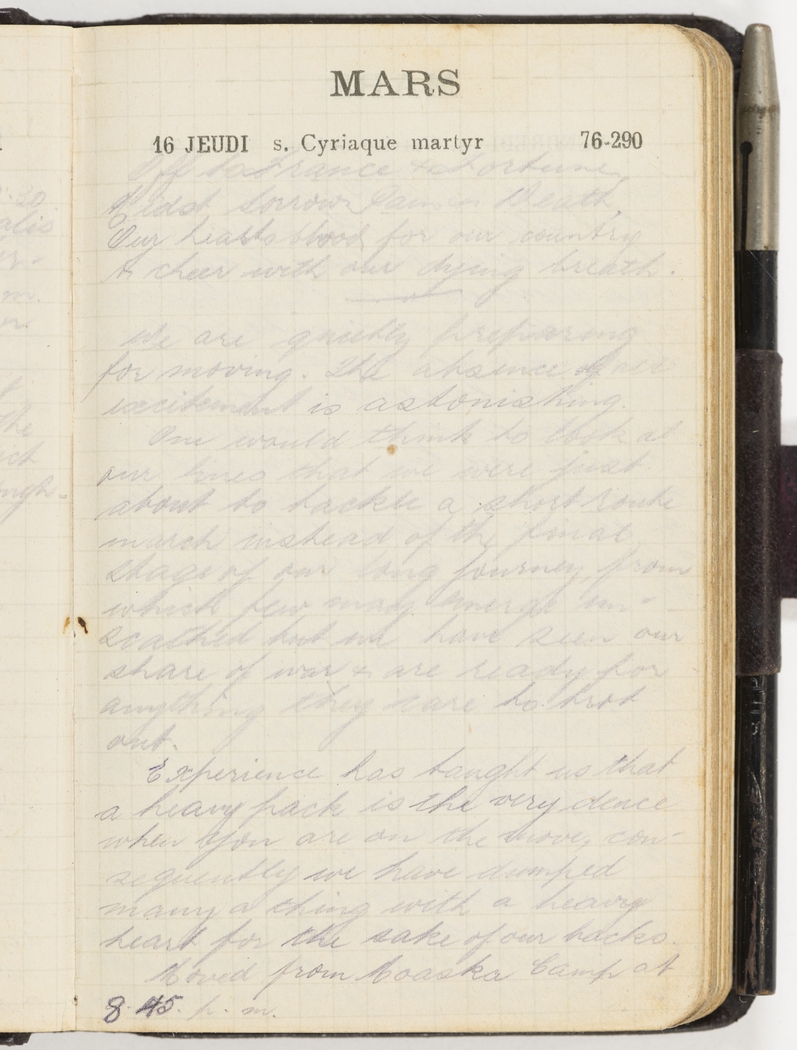 MARS
16 JEUDI s. Cyriaque martyr 76-290
Off to France & Fortune,
Midst Sorrow Pain or Death,
Our hearts blood for our country
A cheer with our dying breath.
We are quietly preparing
for moving. The absence of
excitement is astonishing.
One would think to look at
our lines that we were just
about to tackle a short route
march instead of the final
stage of our long journey from
which few may emerge un-
scathed but we have seen our
share of war & are ready for
anything they care to trot
out.
Experience has taught us that
a heavy pack is the very deuce
when you are on the move, con-
sequently we have dumped
many a thing with a heavy
heart for the sake of our backs.
Moved from Moaska Camp at
8.45. p. m.
30
alis
m.
the